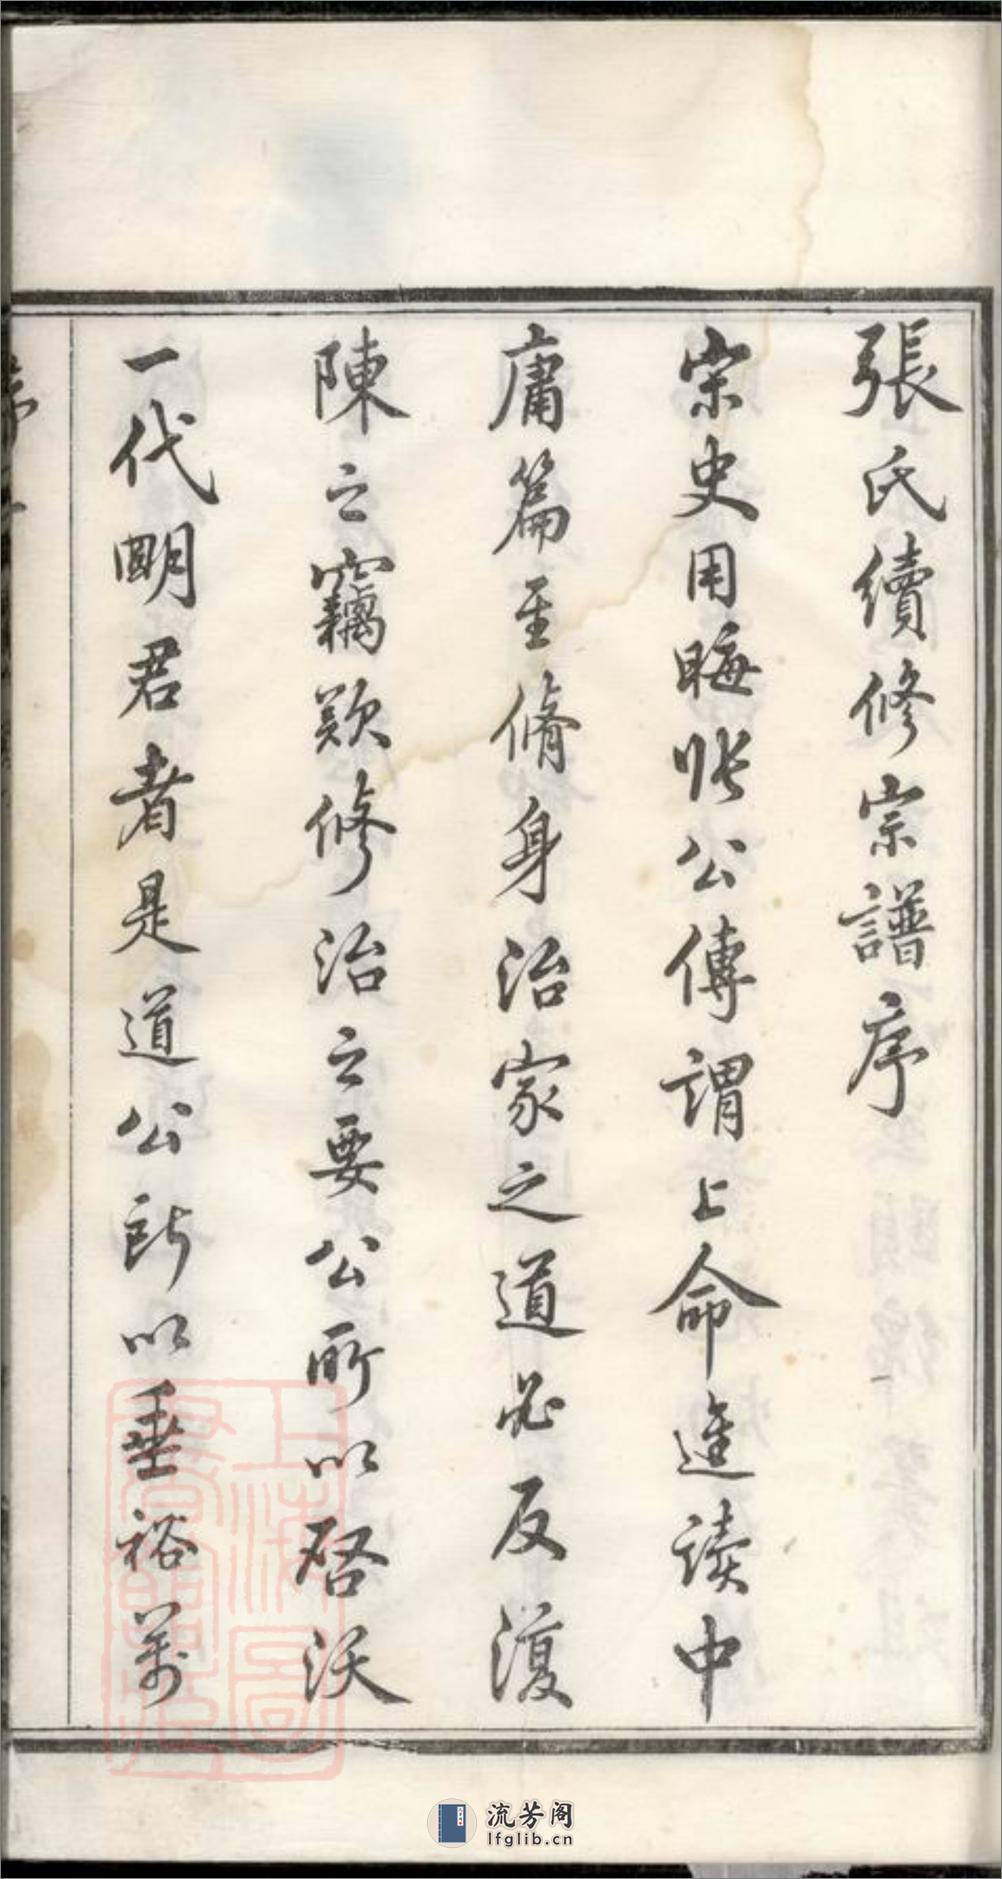 張氏續修宗譜序
宋史用晦張公傳謂上命進讀中
庸篇至脩身治家之道必反復
陳之竊歎修治之要公所以啓沃
一代明君者是道公所以垂裕萬
上海圖書館藏
流芳阁
lfglib.cn